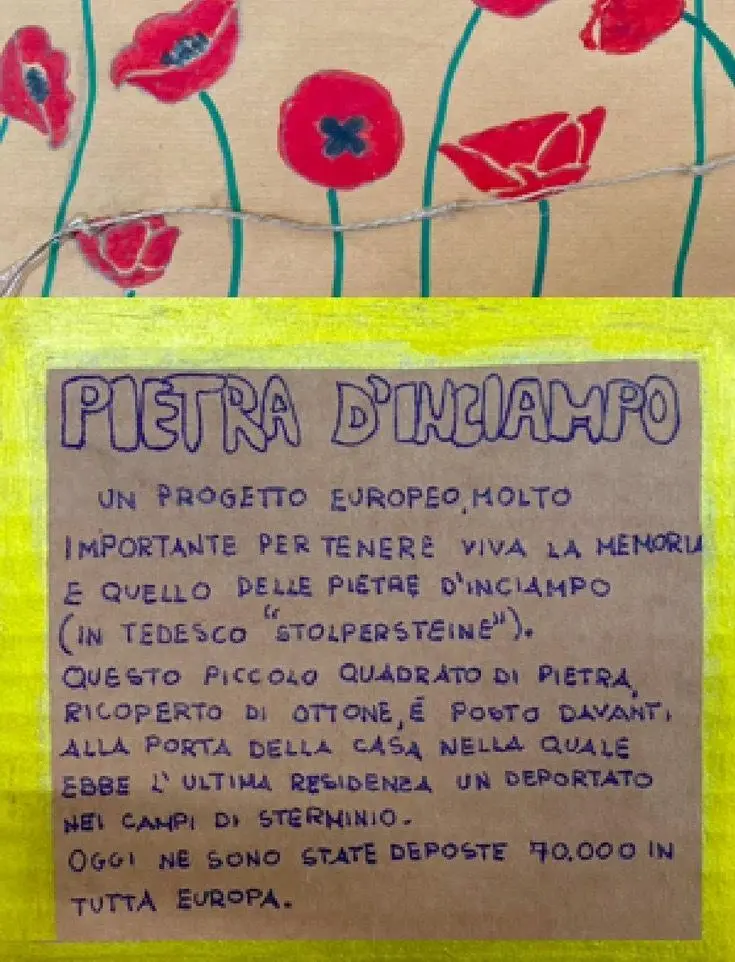 PIETRA D'INCIAMPO
UN PROGETTO EUROPEO, MOLTO
IMPORTANTE PER TENERE VIVA LA MEMORIA
E QUELLO DELLE PIETRE D'INCIAMPO
(IN TEDESCO "STOLPERSTEINE").
QUESTO PICCOLO QUADRATO DI PIETRA,
RICOPERTO DI OTTONE, É POSTO DAVANTI
ALLA PORTA DELLA CASA NELLA QUALE
EBBE L'ULTIMA RESIDENZA UN DEPORTATO
NEI CAMPI DI STERMINIO.
OGGI NE SONO STATE DEPOSTE 70.000 IN
TUTTA EUROPA.